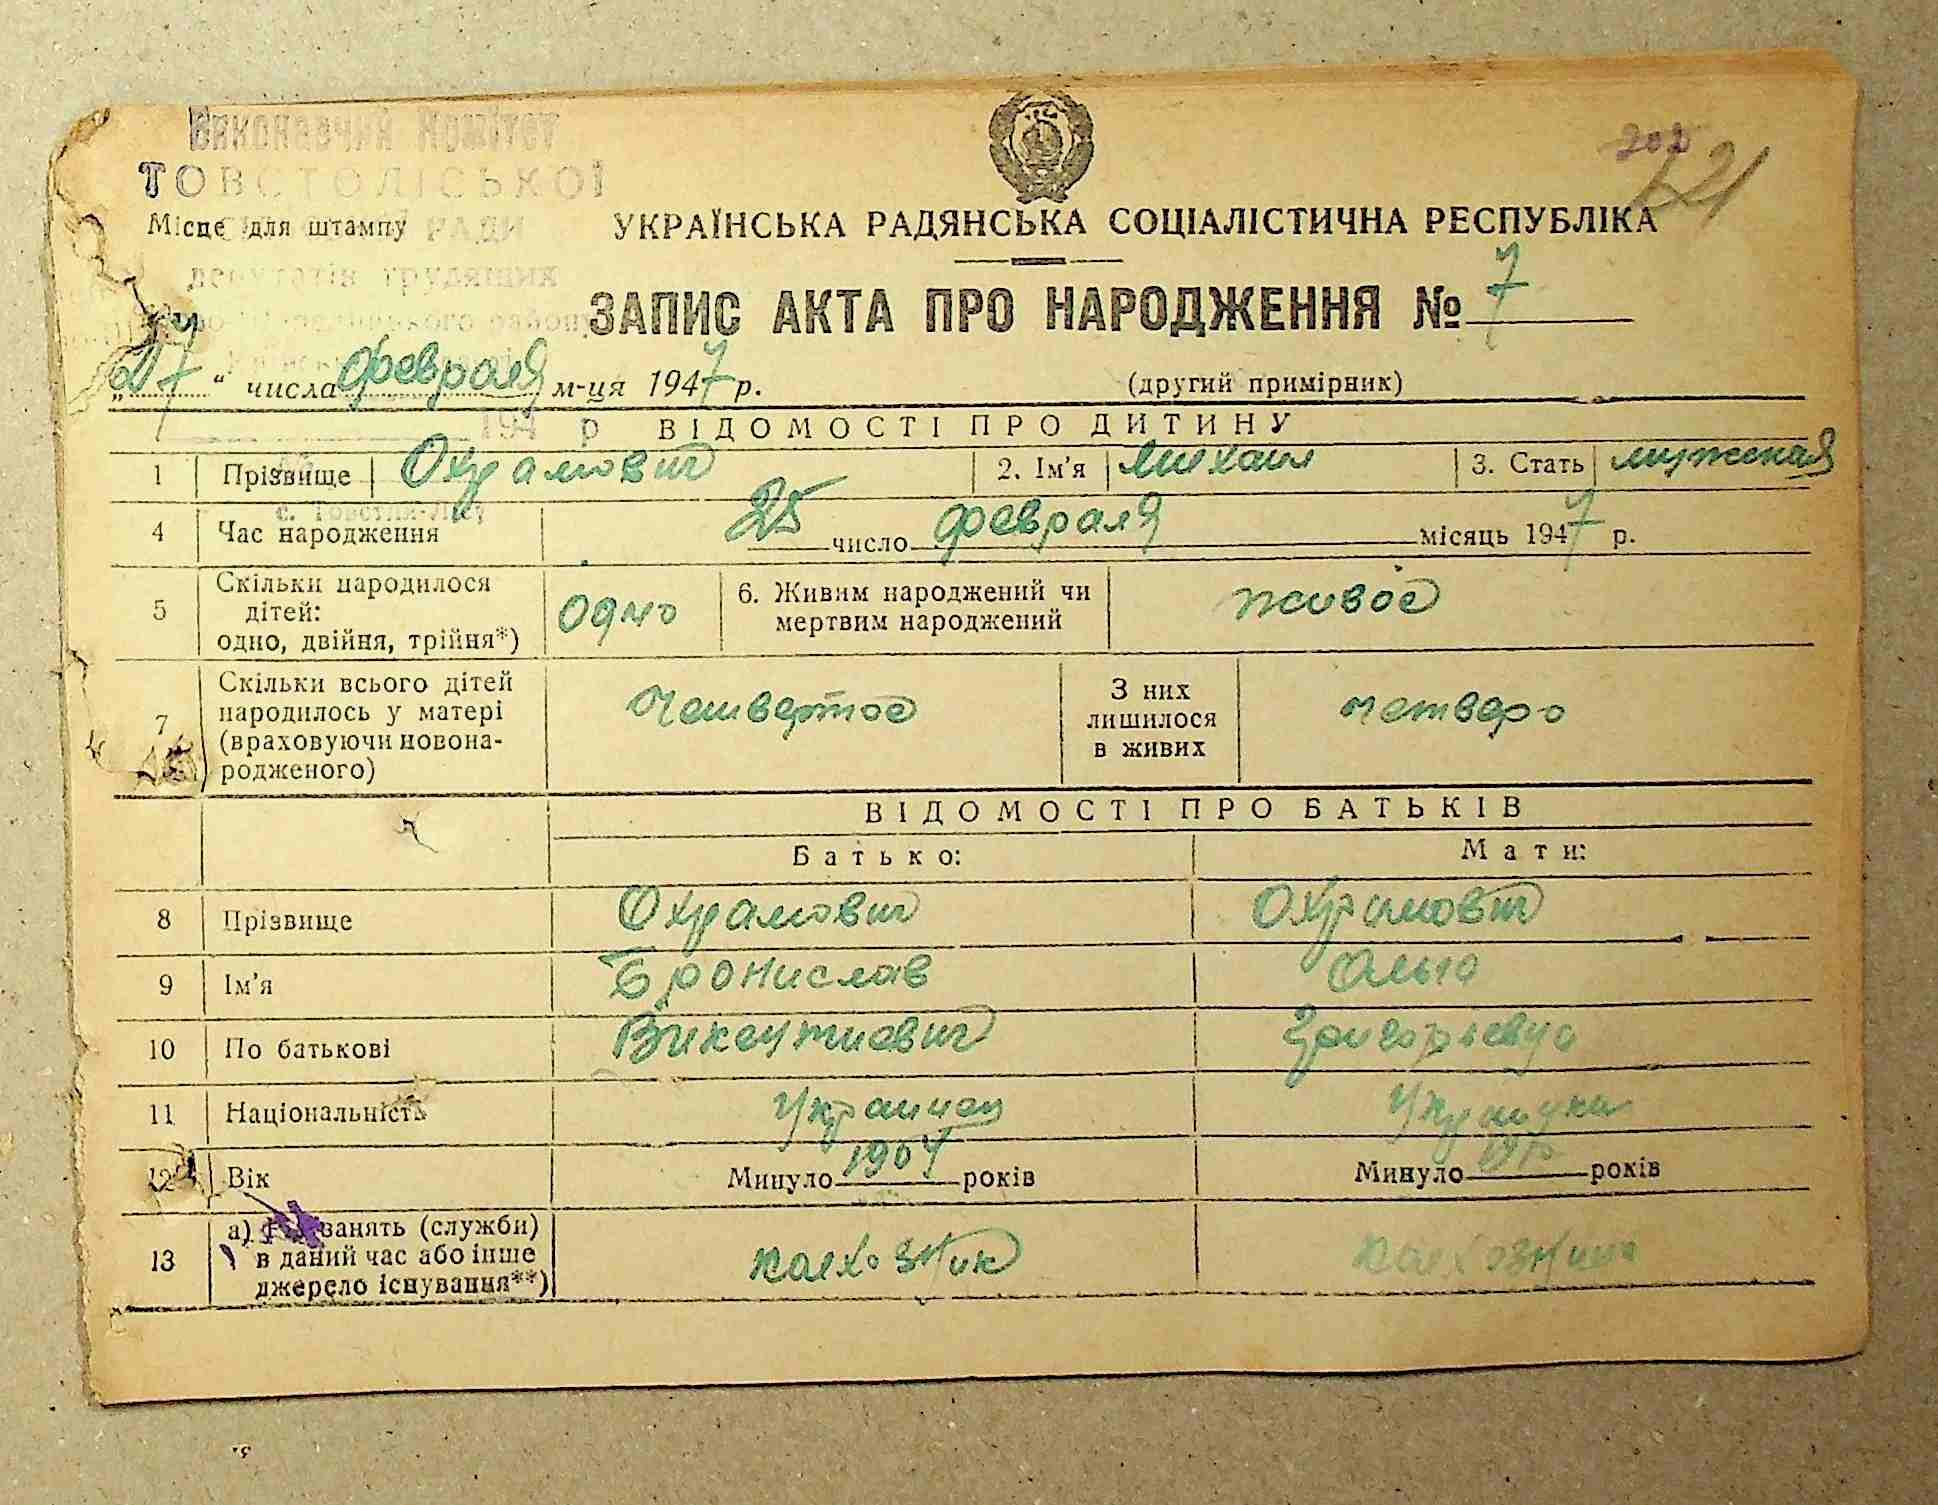 Виконавчий Комітет
ТОВСТОЛІСЬКОЇ
РАДИ
депутатів трудящих
району
Місце для штампу
202
121
УКРАЇНСЬКА РАДЯНСЬКА СОЦІАЛІСТИЧНА РЕСПУБЛІКА
ЗАПИС АКТА ПРО НАРОДЖЕННЯ № 7
„27“ числа февраля м-ця 1947 р. (другий примірник)
194 р
ВІДОМОСТІ ПРО ДИТИНУ
1 Прізвище Охрамович 2. Ім'я Михаил 3. Стать мужская
с. Товстий-Ліс
4 Час народження 25 число февраля місяць 1947 р.
5 Скільки народилося дітей: одно, двійня, трійня*) одно 6. Живим народжений чи мертвим народжений живое
7 Скільки всього дітей народилось у матері (враховуючи новонародженого) четвертое З них лишилося в живих четверо
ВІДОМОСТІ ПРО БАТЬКІВ
Батько: Мати:
8 Прізвище Охрамович Охрамович
9 Ім'я Бронислав Ольга
10 По батькові Викентиевич Григорьевна
11 Національність Украинец Украинка
12 Вік Минуло 1904 років Минуло років
13 а) занять (служби) в даний час або інше джерело існування**) колхозник колхозница